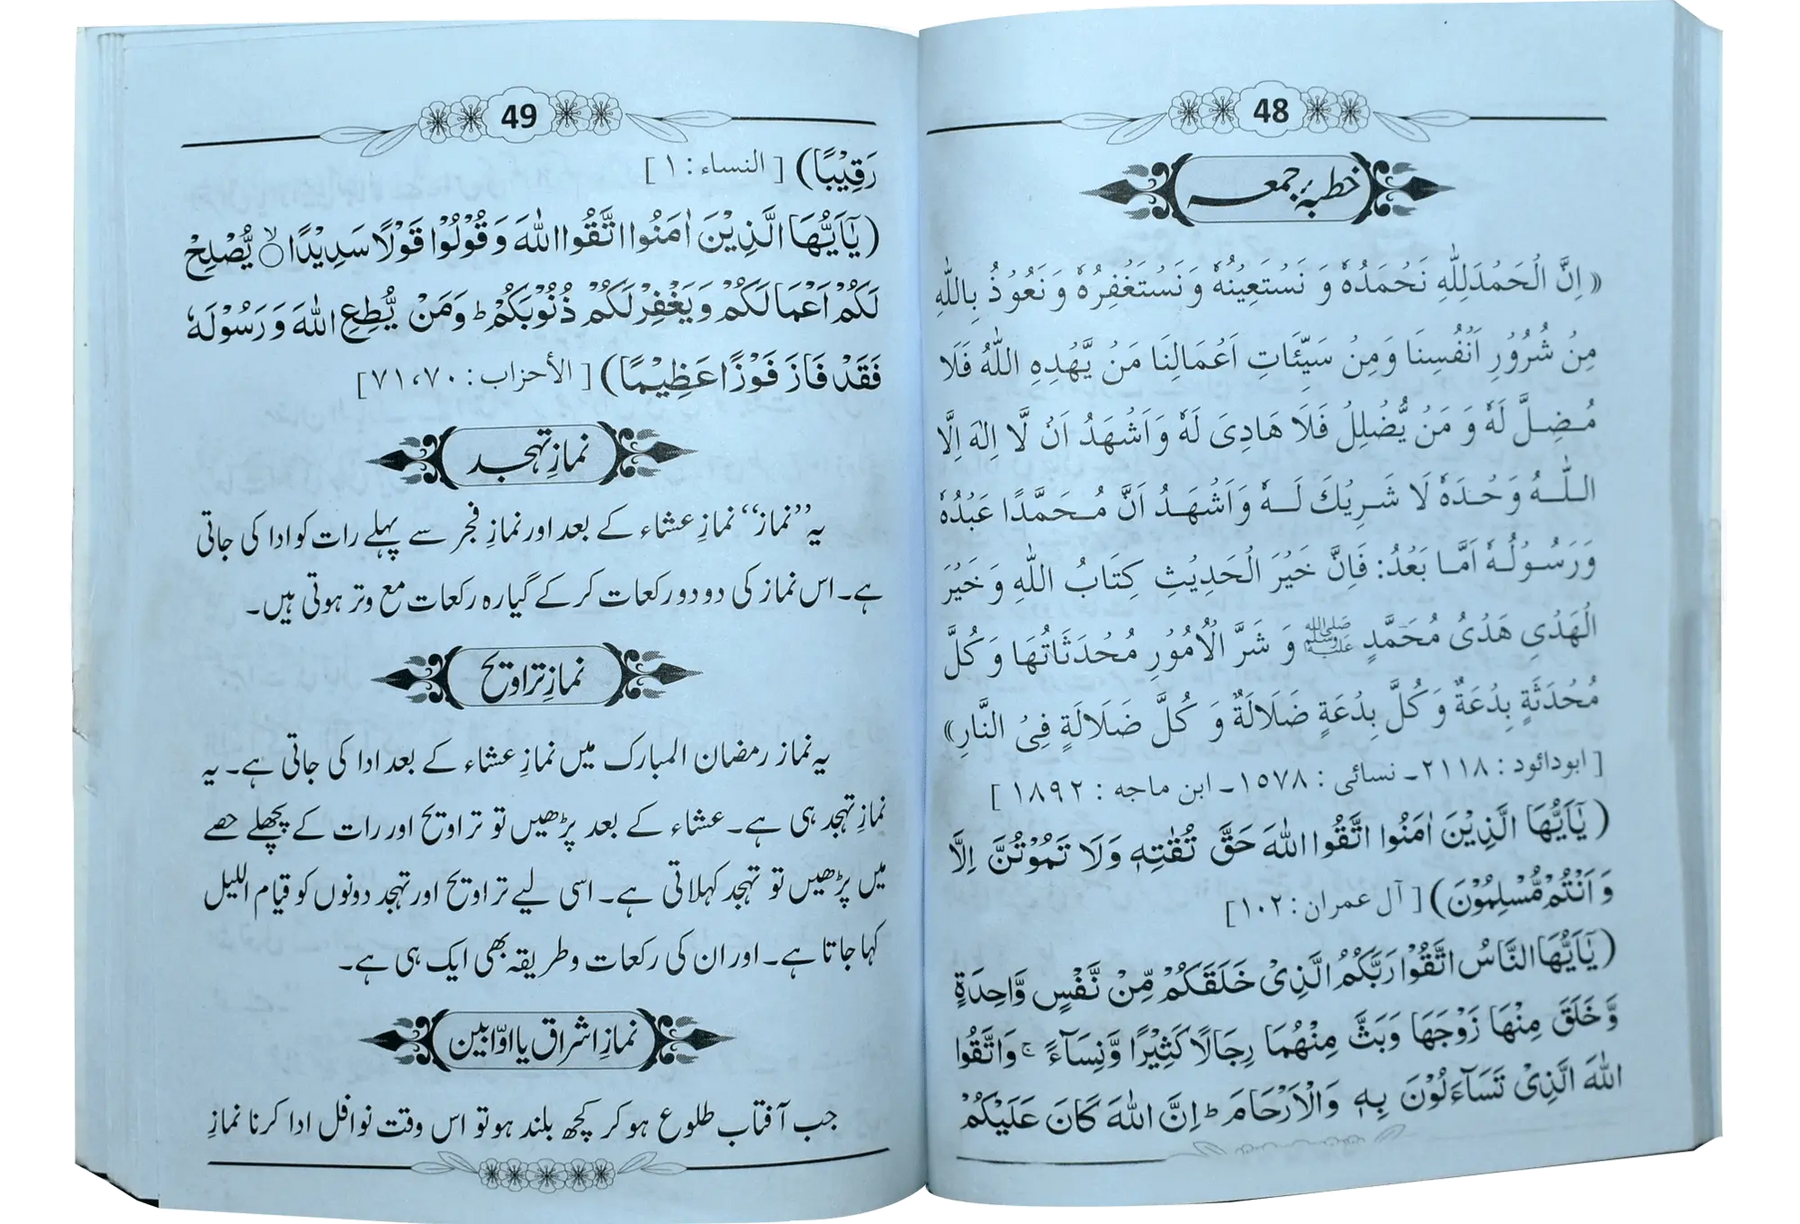 48
خطبۂ جمعہ
﴿ اِنَّ الْحَمْدَ لِلّٰهِ نَحْمَدُهٗ وَ نَسْتَعِيْنُهٗ وَنَسْتَغْفِرُهٗ وَنَعُوْذُ بِاللّٰهِ
مِنْ شُرُوْرِ اَنْفُسِنَا وَمِنْ سَيِّئَاتِ اَعْمَالِنَا مَنْ يَّهْدِهِ اللّٰهُ فَلَا
مُضِلَّ لَهٗ وَ مَنْ يُّضْلِلْ فَلَا هَادِىَ لَهٗ وَاَشْهَدُ اَنْ لَّا اِلٰهَ اِلَّا
اللّٰهُ وَحْدَهٗ لَا شَرِيْكَ لَهٗ وَاَشْهَدُ اَنَّ مُحَمَّدًا عَبْدُهٗ
وَرَسُوْلُهٗ اَمَّا بَعْدُ: فَاِنَّ خَيْرَ الْحَدِيْثِ كِتَابُ اللّٰهِ وَ خَيْرَ
الْهَدْىِ هَدْىُ مُحَمَّدٍ ﷺ وَ شَرَّ الْاُمُوْرِ مُحْدَثَاتُهَا وَ كُلَّ
مُحْدَثَةٍ بِدْعَةٌ وَ كُلَّ بِدْعَةٍ ضَلَالَةٌ وَ كُلَّ ضَلَالَةٍ فِى النَّارِ﴾
[ ابودائود : ٢١١٨۔ نسائى : ١٥٧٨۔ ابن ماجه : ١٨٩٢ ]
( يٰٓاَيُّهَا الَّذِيْنَ اٰمَنُوا اتَّقُوا اللّٰهَ حَقَّ تُقٰتِهٖ وَلَا تَمُوْتُنَّ اِلَّا
وَ اَنْتُمْ مُّسْلِمُوْنَ) [ آل عمران : ١٠٢ ]
( يٰٓاَيُّهَا النَّاسُ اتَّقُوْا رَبَّكُمُ الَّذِىْ خَلَقَكُمْ مِّنْ نَّفْسٍ وَّاحِدَةٍ
وَّ خَلَقَ مِنْهَا زَوْجَهَا وَبَثَّ مِنْهُمَا رِجَالًا كَثِيْرًا وَّنِسَآءً ۚ وَاتَّقُوا
اللّٰهَ الَّذِىْ تَسَآءَلُوْنَ بِهٖ وَالْاَرْحَامَ ؕ اِنَّ اللّٰهَ كَانَ عَلَيْكُمْ
49
رَقِيْبًا) [ النساء : ١ ]
( يٰٓاَيُّهَا الَّذِيْنَ اٰمَنُوا اتَّقُوا اللّٰهَ وَ قُوْلُوْا قَوْلًا سَدِيْدًا ۙ يُّصْلِحْ
لَكُمْ اَعْمَالَكُمْ وَيَغْفِرْ لَكُمْ ذُنُوْبَكُمْ ؕ وَمَنْ يُّطِعِ اللّٰهَ وَ رَسُوْلَهٗ
فَقَدْ فَازَ فَوْزًا عَظِيْمًا) [ الأحزاب : ٧١،٧٠ ]
نمازِ تہجد
یہ ’’نماز‘‘ نمازِ عشاء کے بعد اور نمازِ فجر سے پہلے رات کو ادا کی جاتی
ہے۔ اس نماز کی دو دو رکعات کر کے گیارہ رکعات مع وتر ہوتی ہیں۔
نمازِ تراویح
یہ نماز رمضان المبارک میں نمازِ عشاء کے بعد ادا کی جاتی ہے۔ یہ
نمازِ تہجد ہی ہے۔ عشاء کے بعد پڑھیں تو تراویح اور رات کے پچھلے حصے
میں پڑھیں تو تہجد کہلاتی ہے۔ اسی لیے تراویح اور تہجد دونوں کو قیام اللیل
کہا جاتا ہے۔ اور ان کی رکعات و طریقہ بھی ایک ہی ہے۔
نمازِ اشراق یا اوّابین
جب آفتاب طلوع ہو کر کچھ بلند ہو تو اس وقت نوافل ادا کرنا نمازِ